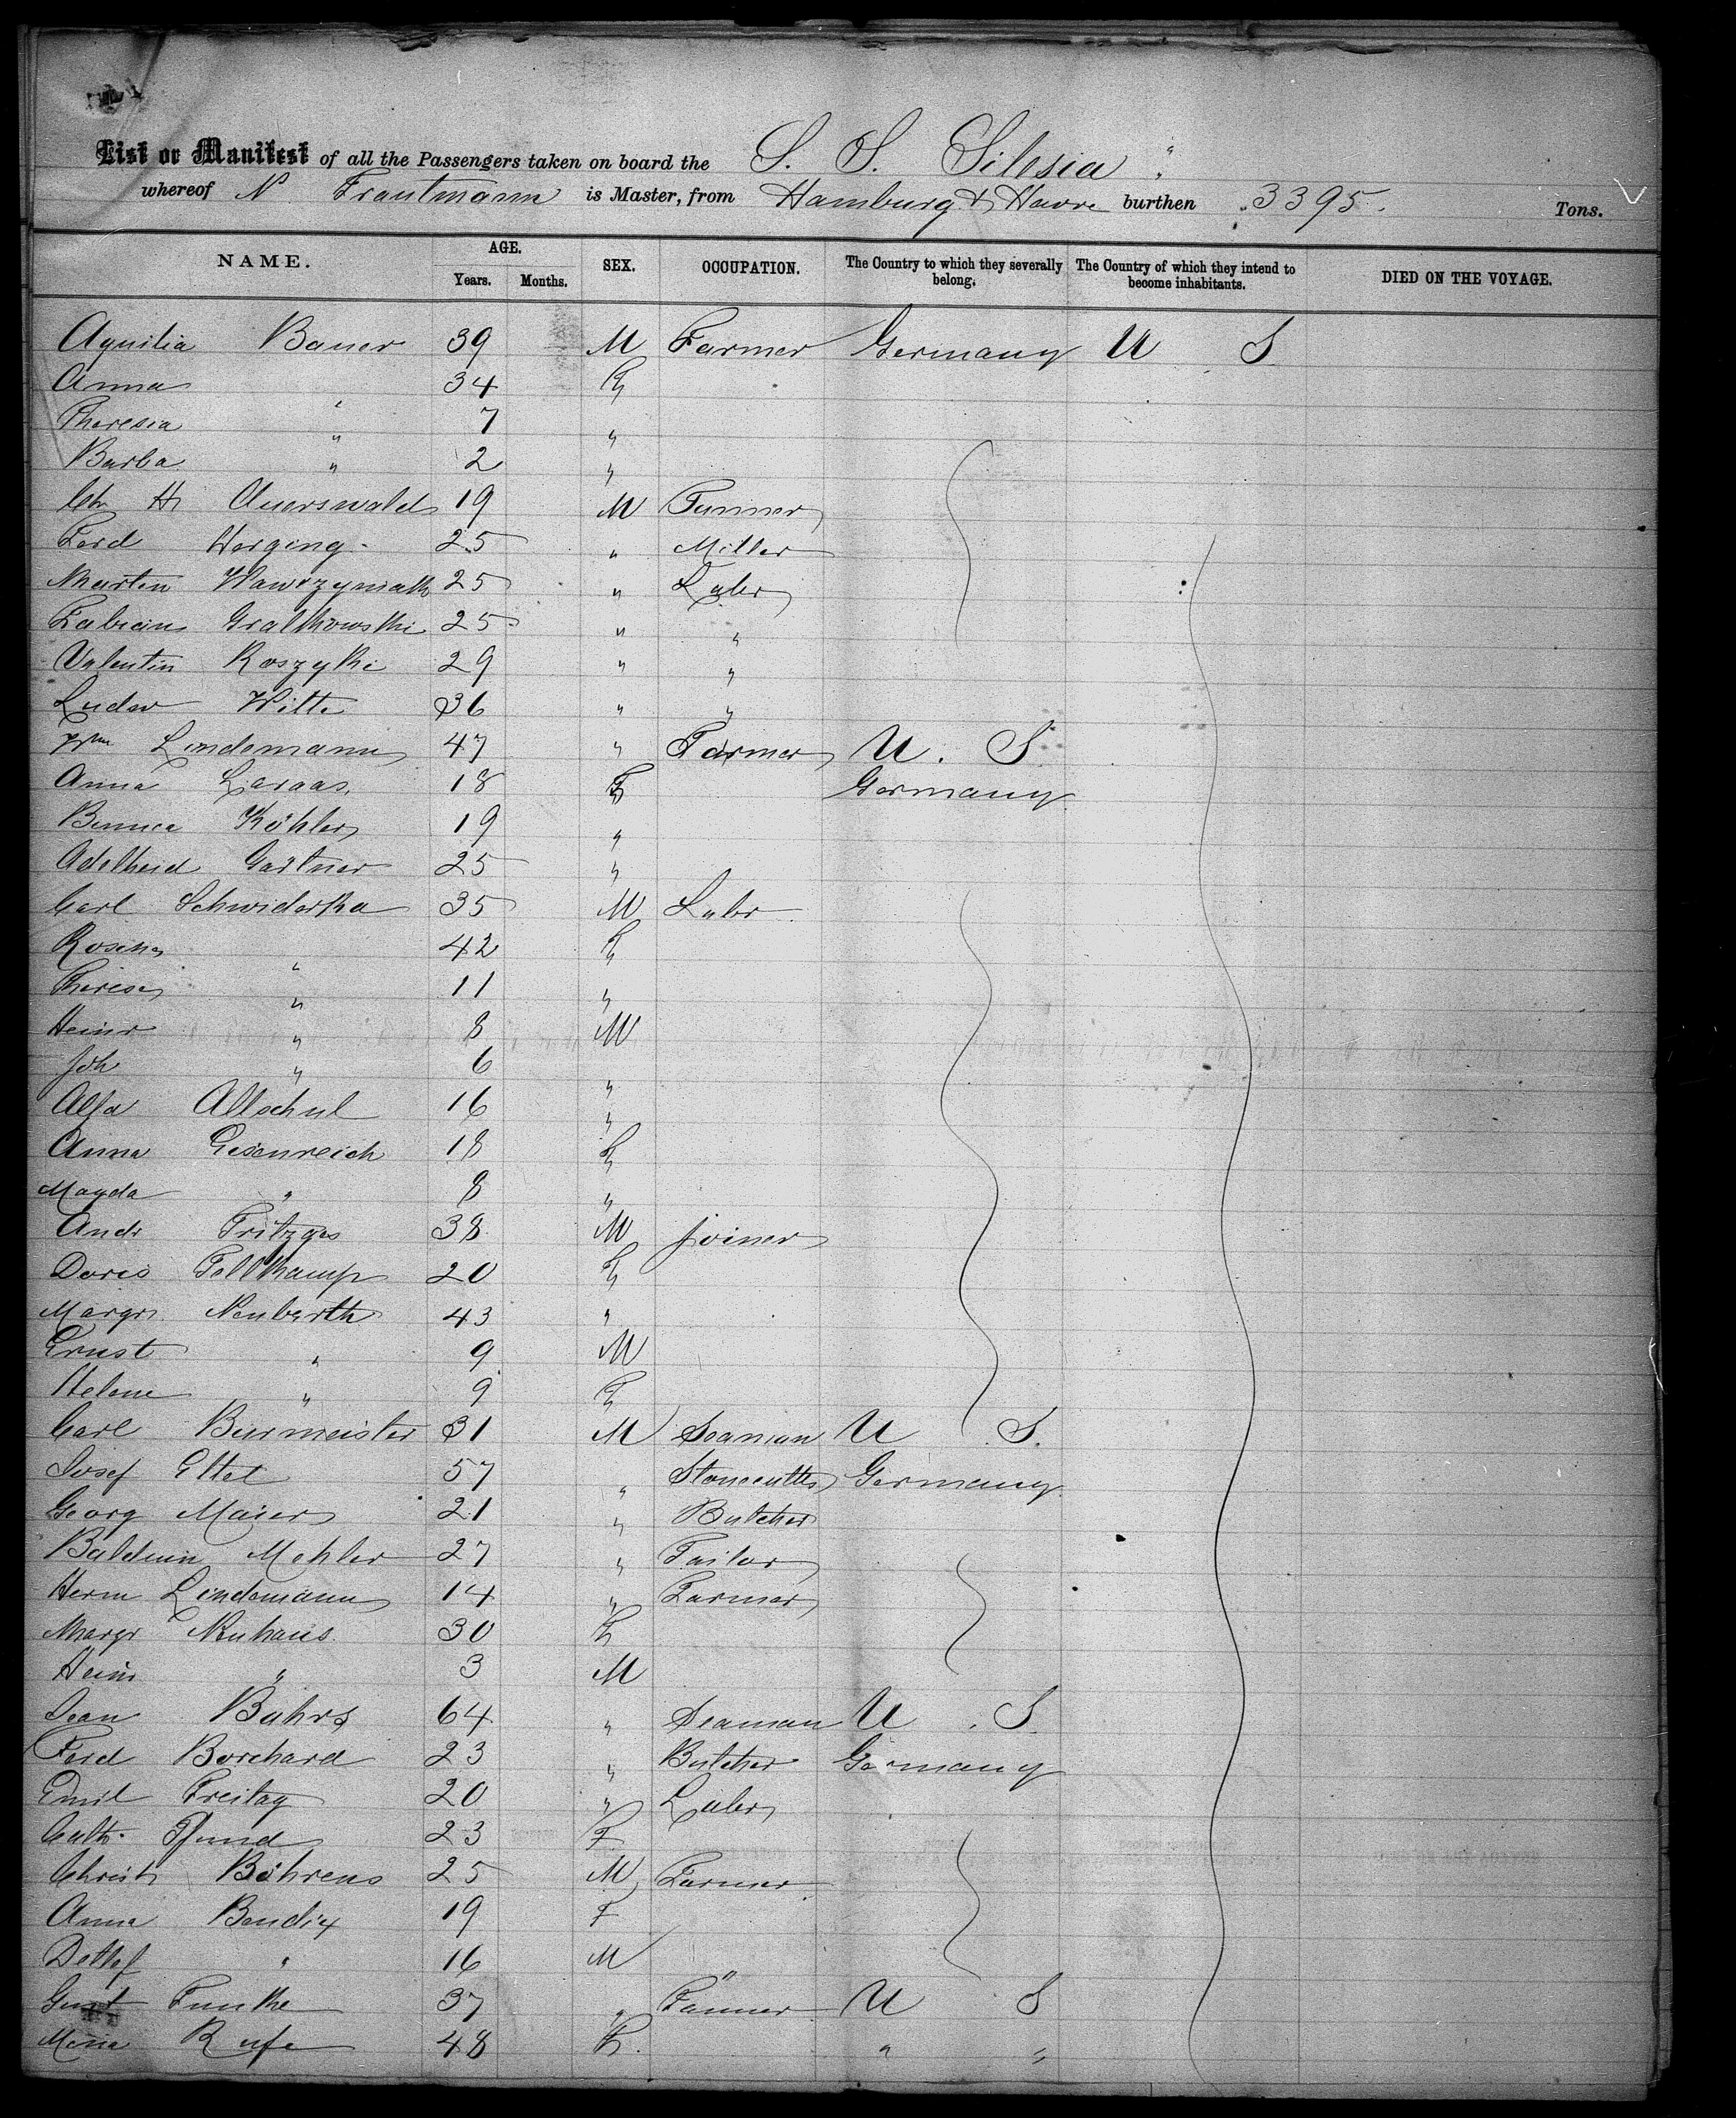 List or Manifest of all the Passengers taken on board the S. S. Silesia "
whereof N Trautmann is Master, from Hamburg & Havre burthen 3395. Tons.
NAME. AGE. Years. Months. SEX. OCCUPATION. The Country to which they severally belong. The Country of which they intend to become inhabitants. DIED ON THE VOYAGE.
Aquilia Bauer 39 M Farmer Germany U S
Anna " 34 F
Theresia " 7 "
Barba " 2 "
Chr H Auerswald 19 M Tanner
Ferd Herging 25 " Miller
Martin Wawrzyniak 25 " Labr
Fabian Gralkowski 25 " "
Valentin Roszyki 29 " "
Ludw Witte 36 " "
Wm Lindemann 47 " Farmer U. S.
Anna 18 F Germany
Köhler 19 "
Adelheid Gärtner 25 "
Carl Schwiderka 35 M Labr
Rosina " 42 F
Theresa " 11 "
Heinr " 8 M
Joh " 6 "
Altschul 16 "
Anna Eisenreich 18 F
Magda " 8 "
Andr 38 M joiner
Doris Fellkamp 20 F
Margr Neuberth 43 "
Ernst " 9 M
Helene " 9 F
Carl Burmeister 31 M Seaman U S.
Josef Ettel 57 " Stonecutter Germany
Georg Maier 21 " Butcher
Balduin Mehler 27 " Tailor
Herm Lindemann 14 " Farmer
Margr Neuhaus 30 F
Heinr " 3 M
Jean Bahrs 64 " Seaman U. S.
Ferd Borchard 23 " Butcher Germany
Emil Freitag 20 " Labr
Cath. Pfund 23 F
Christ Bährens 25 M Farmer
Anna Bendix 19 F
Detlef " 16 M "
Gust Funke 37 " Farmer U S
Mina Rufe 48 F. " "